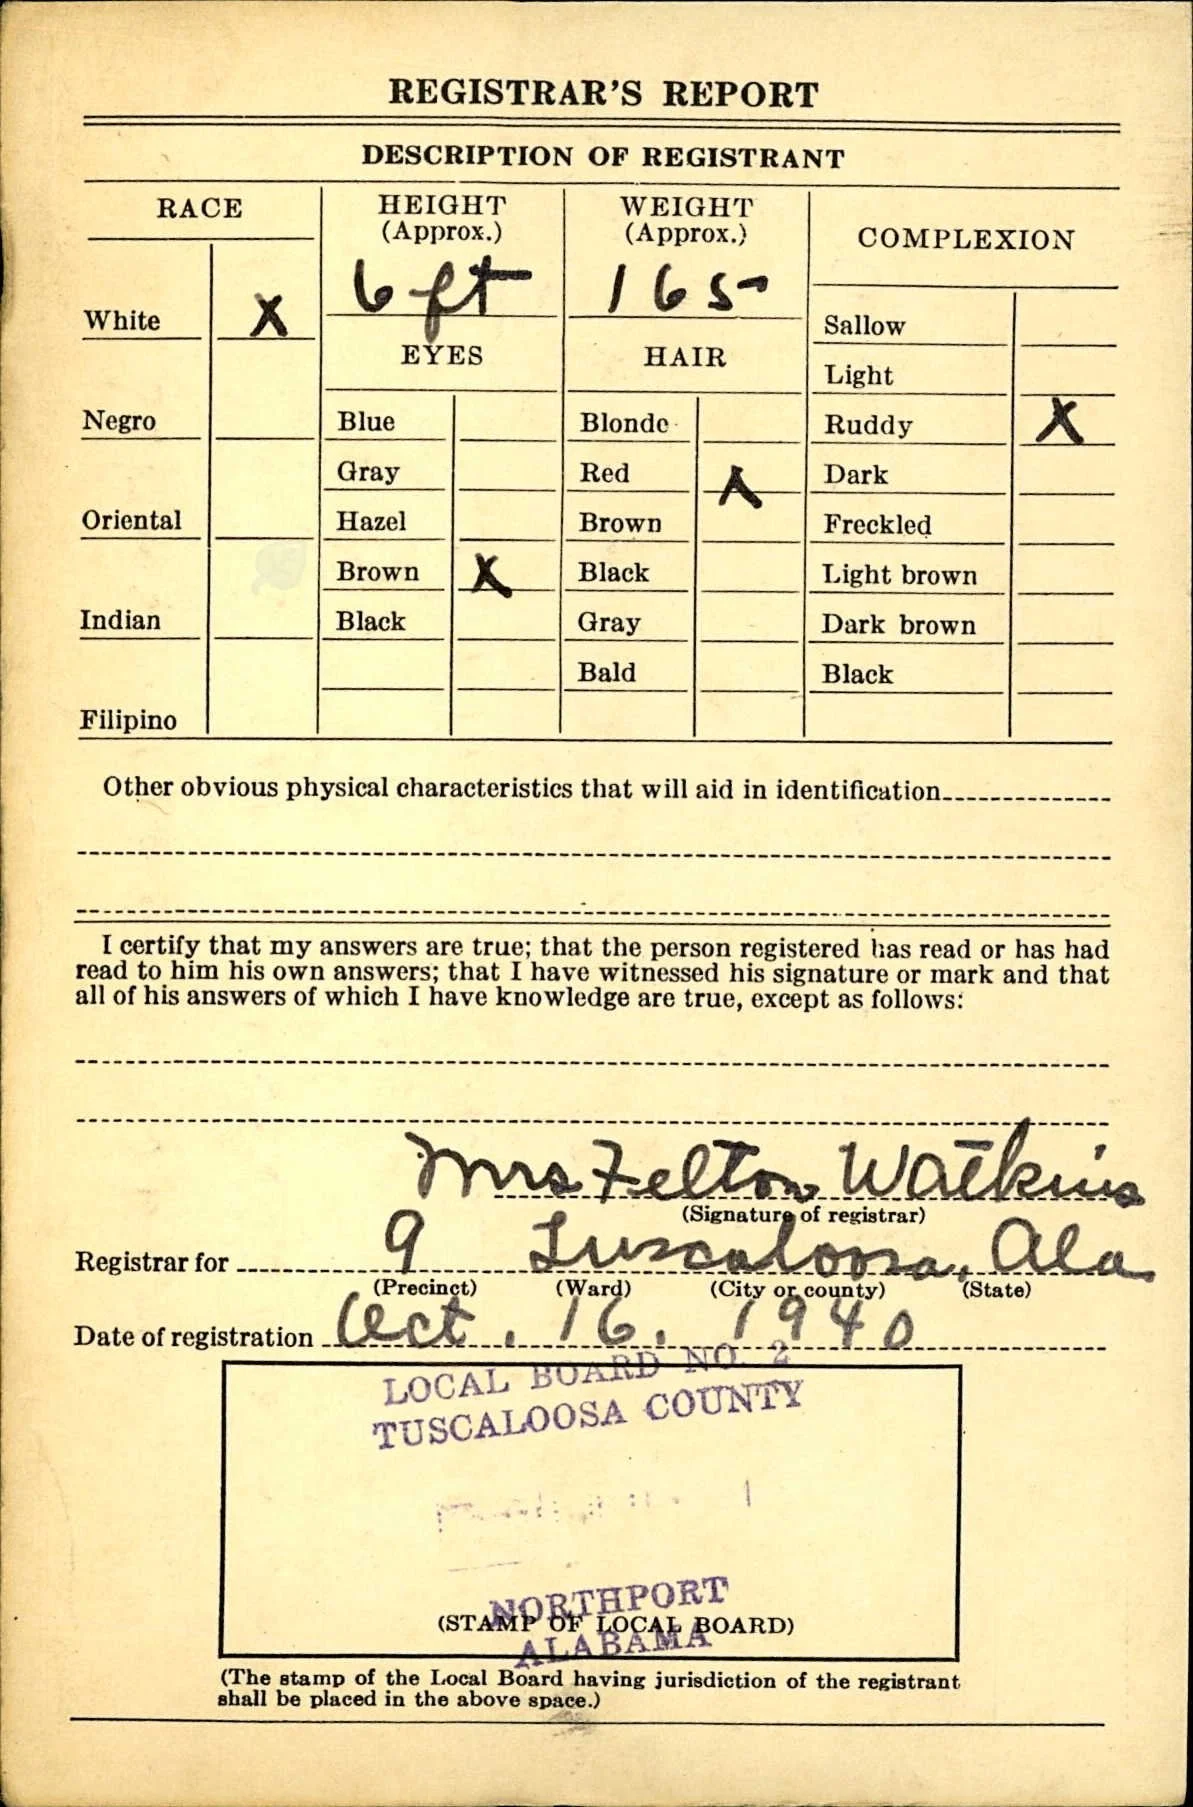 REGISTRAR'S REPORT
DESCRIPTION OF REGISTRANT
RACE
HEIGHT
(Approx.)
WEIGHT
(Approx.)
COMPLEXION
6 ft
165
White X
Sallow
EYES
HAIR
Light
Negro
Blue
Blonde
Ruddy X
Gray
Red X
Dark
Oriental
Hazel
Brown
Freckled
Brown X
Black
Light brown
Indian
Black
Gray
Dark brown
Bald
Black
Filipino
Other obvious physical characteristics that will aid in identification
I certify that my answers are true; that the person registered has read or has had
read to him his own answers; that I have witnessed his signature or mark and that
all of his answers of which I have knowledge are true, except as follows:
Mrs Felton Watkins
(Signature of registrar)
Registrar for 9 Tuscaloosa, Ala
(Precinct) (Ward) (City or county) (State)
Date of registration Oct. 16. 1940
LOCAL BOARD NO. 2
TUSCALOOSA COUNTY
NORTHPORT
(STAMP OF LOCAL BOARD)
ALABAMA
(The stamp of the Local Board having jurisdiction of the registrant
shall be placed in the above space.)